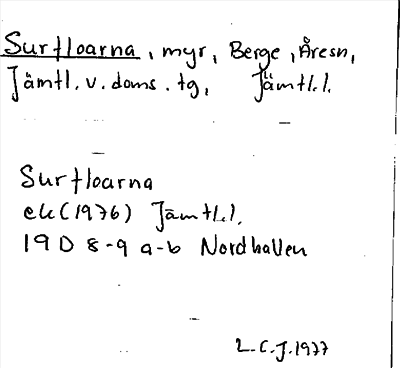 Surfloarna, myr, Berge, Åresn,
Jämtl. v. doms. tg, Jämtl.l.
Surfloarna
ek (1976) Jämtl.l.
19D 8-9 a-b Nordhallen
L.C.J. 1977